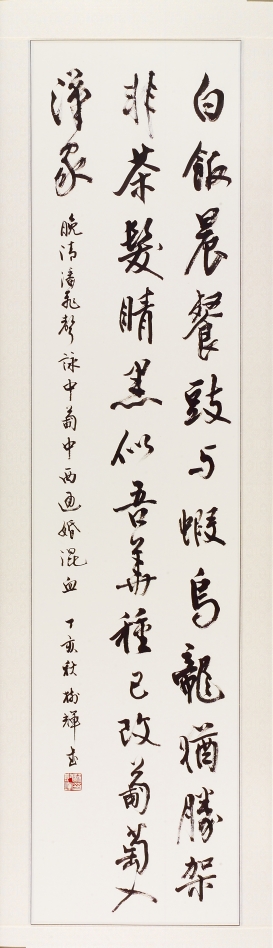 白飯晨餐豉与蝦烏龍猶勝架
非茶髮睛黑似吾華種已改葡萄入
漢家
晚清潘飛聲詠中葡中西通婚混血 丁亥秋樹輝書